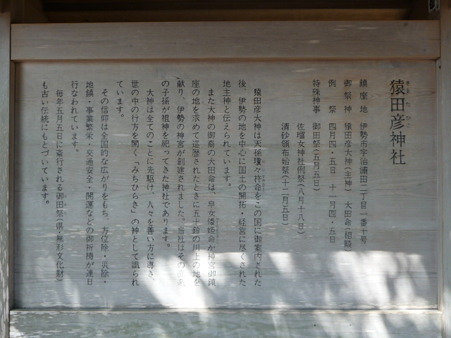 さるたひこ
猿田彦神社
鎮座地 伊勢市宇治浦田二丁目一番十号
御祭神 猿田彦大神(主神) 大田命(相殿)
例祭 四月四・五日 十一月四・五日
特殊神事 御田祭(五月五日)
佐瑠女神社例祭(八月十八日)
清砂頒布始祭(十二月五日)
猿田彦大神は天孫瓊々杵命をこの国に御案内された
後、伊勢の地を中心に国土の開拓・経営に尽くされた
地主神と伝えられています。
また大神の御裔の大田命は、皇女倭姫命が神宮御鎮
座の地を求めて巡歴されたときに五十鈴の川上の地を
献り、伊勢の神宮が創建されました。当社はその直系
の子孫が祖神を祀ってきた神社であります。
大神は全てのことに先駆け、人々を善い方に導き、
世の中の行方を開く「みちひらき」の神として識られ
ています。
その信仰は全国的な広がりをもち、方位除・災除・
地鎮・事業繁栄・交通安全・開運などの御祈祷が連日
行なわれています。
毎年五月五日に斎行される御田祭(県・無形文化財)
も古い伝統にもとづいています。